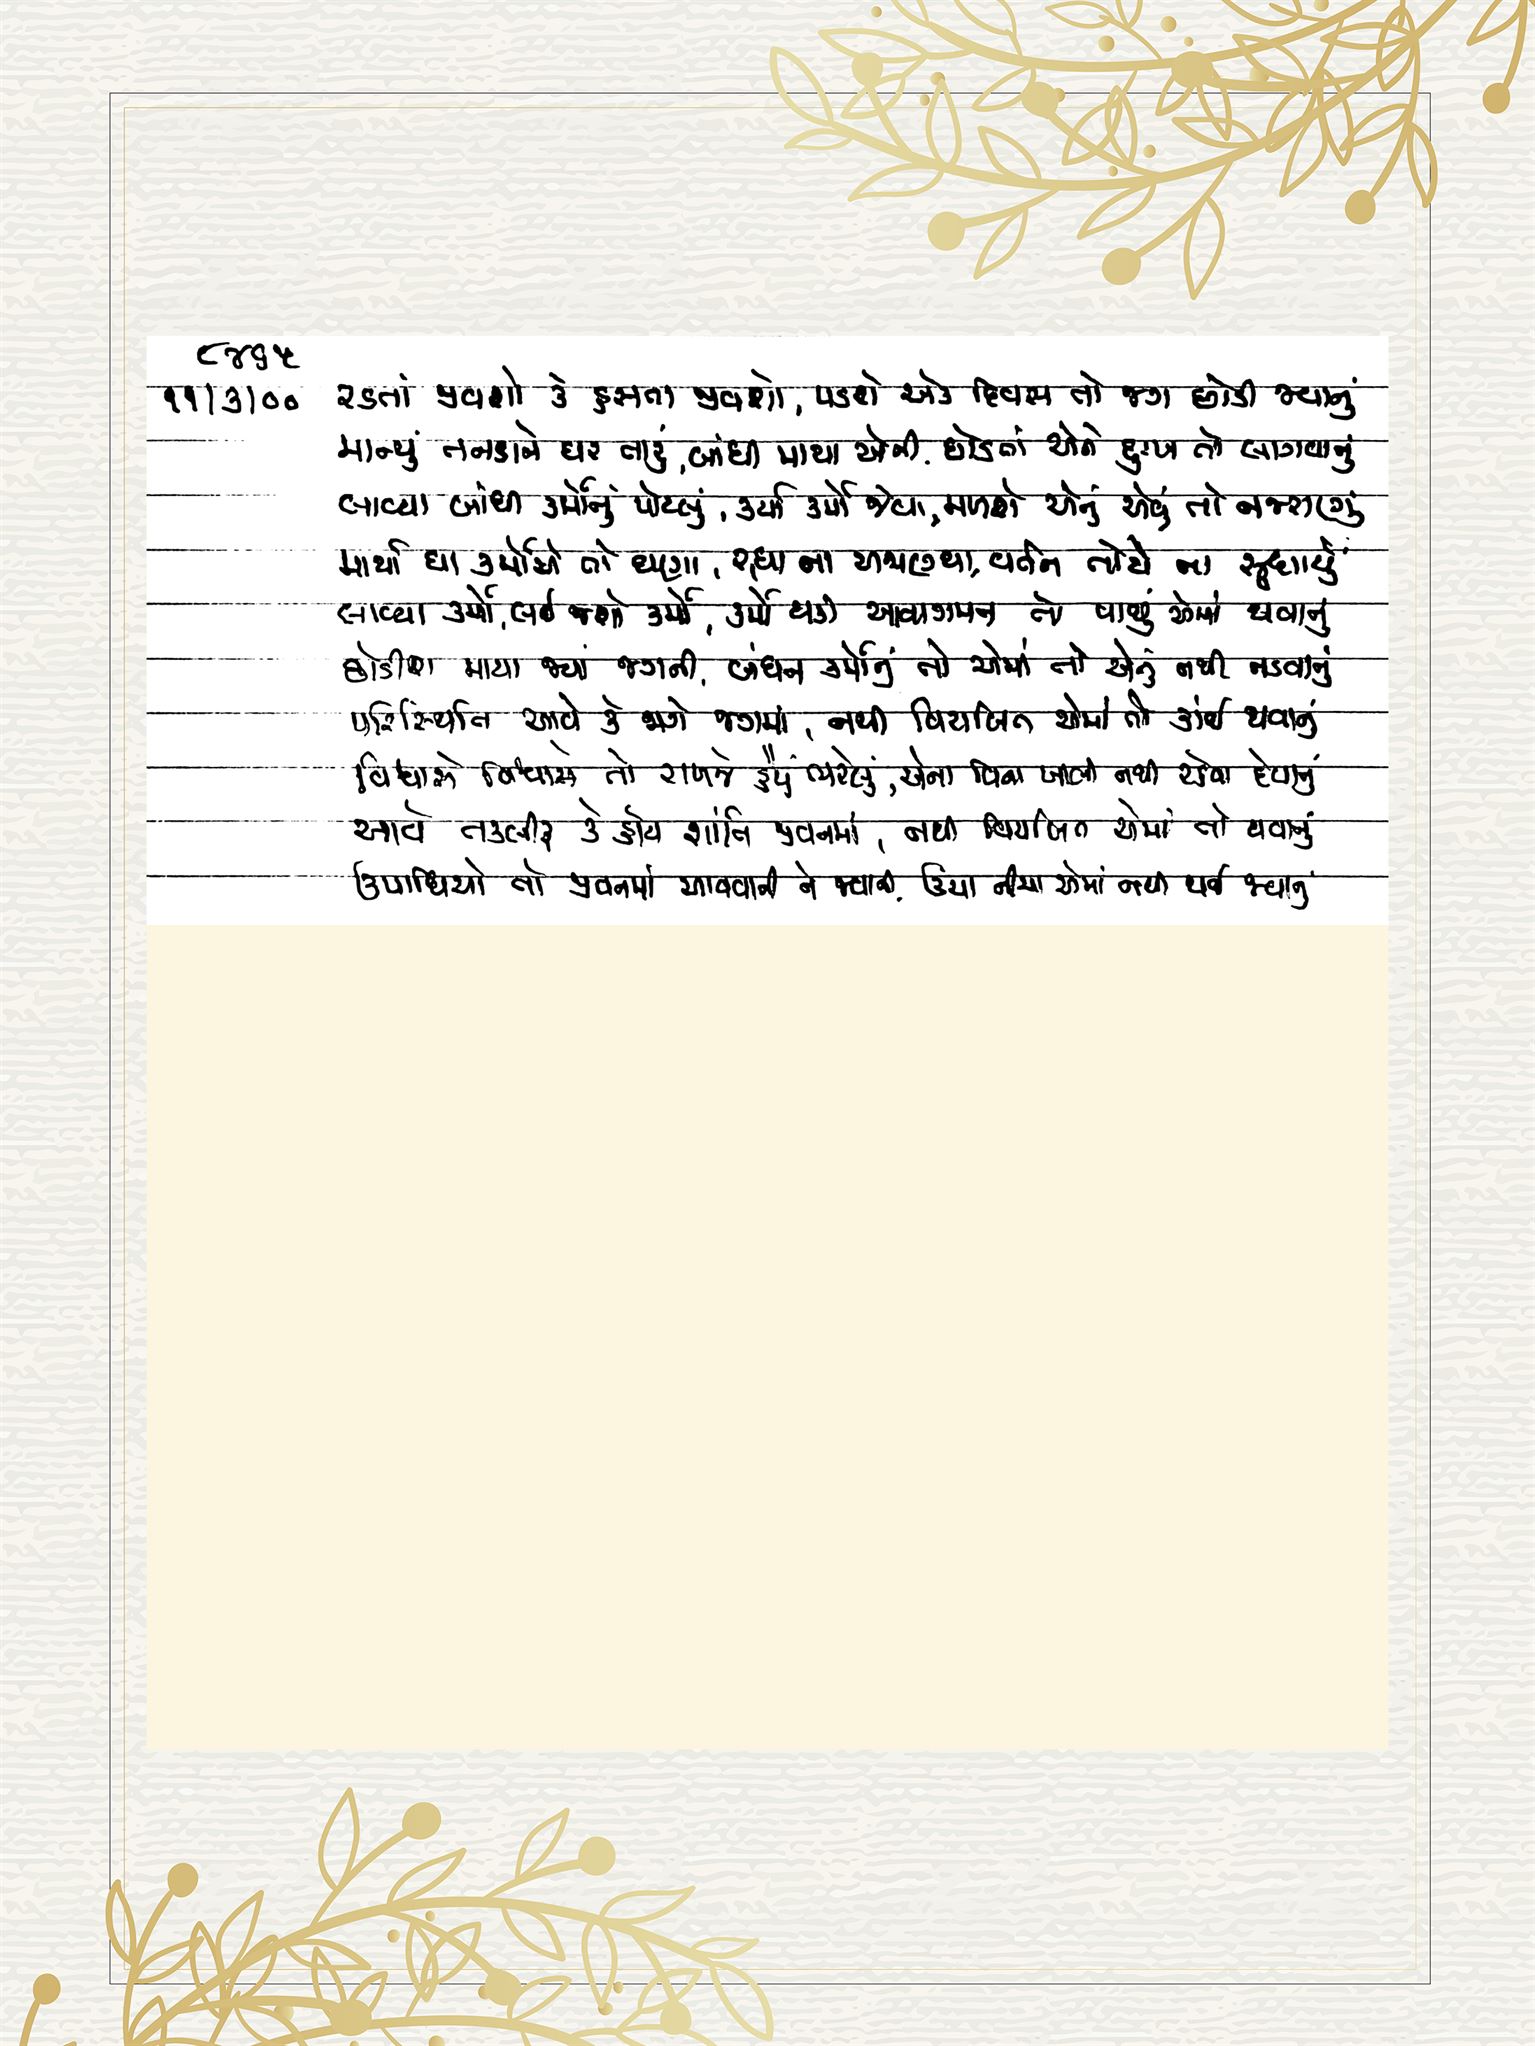 ૮૪૬૫
૧૧/૩/૦૦ રડતાં જીવશો કે હસતા જીવશો, પડશે એક દિવસ તો જગ છોડી જવાનું
માન્યું તનડાને ઘર તારું, બાંધી માયા એની. છોડતાં એને દુઃખ તો લાગવાનું
લાવ્યા બાંધી કર્મોનું પોટલું, કર્યા કર્મો જેવા, મળશે એનું એવું તો નજરાણું
માર્યા ઘા કર્મોએ તો ઘણા, રૂંધા ના, વર્તન તોયે ના સુધાર્યું
લાવ્યા કર્મો, લઈ જાશો કર્મો, કર્મો થકી આવાગમન તો પાછું એમાં થવાનું
છોડીશ માયા જ્યાં જગની, બંધન કર્મોનું તો એમાં તો એનું નથી નડવાનું
પરિસ્થિતિ આવે કે ભાગે જગમાં, નથી વિચલિત એમાં તો કાંઈ થવાનું
વિશ્વાસે વિશ્વાસે તો રાખજે હૈયું ભરેલું, એના વિના ખાલી નથી રહેવા દેવાનું
આવે તકલીફ કે હોય શાંતિ જીવનમાં, નથી વિચલિત એમાં તો થવાનું
ઉપાધિઓ તો જીવનમાં આવવાની ને જવાની, ઉંચા નીચા એમાં નથી થઈ જવાનું